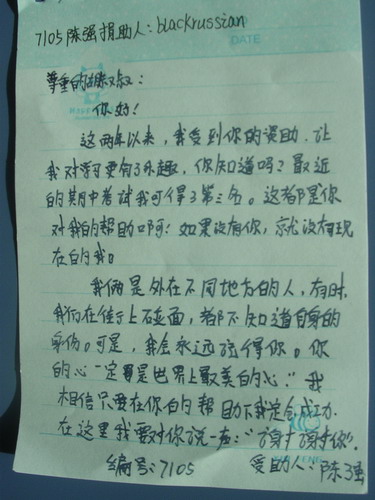 7105 陈强 捐助人：blackrussian
DATE
尊重的胡叔叔：
你好！
这两年以来，我受到你的资助，让
我对学习更有了乐趣，你知道吗？最近
的期中考试我可得了第三名。这都是你
对我的帮助啊！如果没有你，就没有现
在的我。
我俩是外在不同地方的人，有时，
我们在街上碰面，都不知道自身的
身份。可是，我会永远记得你。你
的心一定是世界上最美的心。"我
相信只要在你的帮助下我定会成功.
在这里我要对你说一声："谢谢你".
编号：7105 受助人：陈强